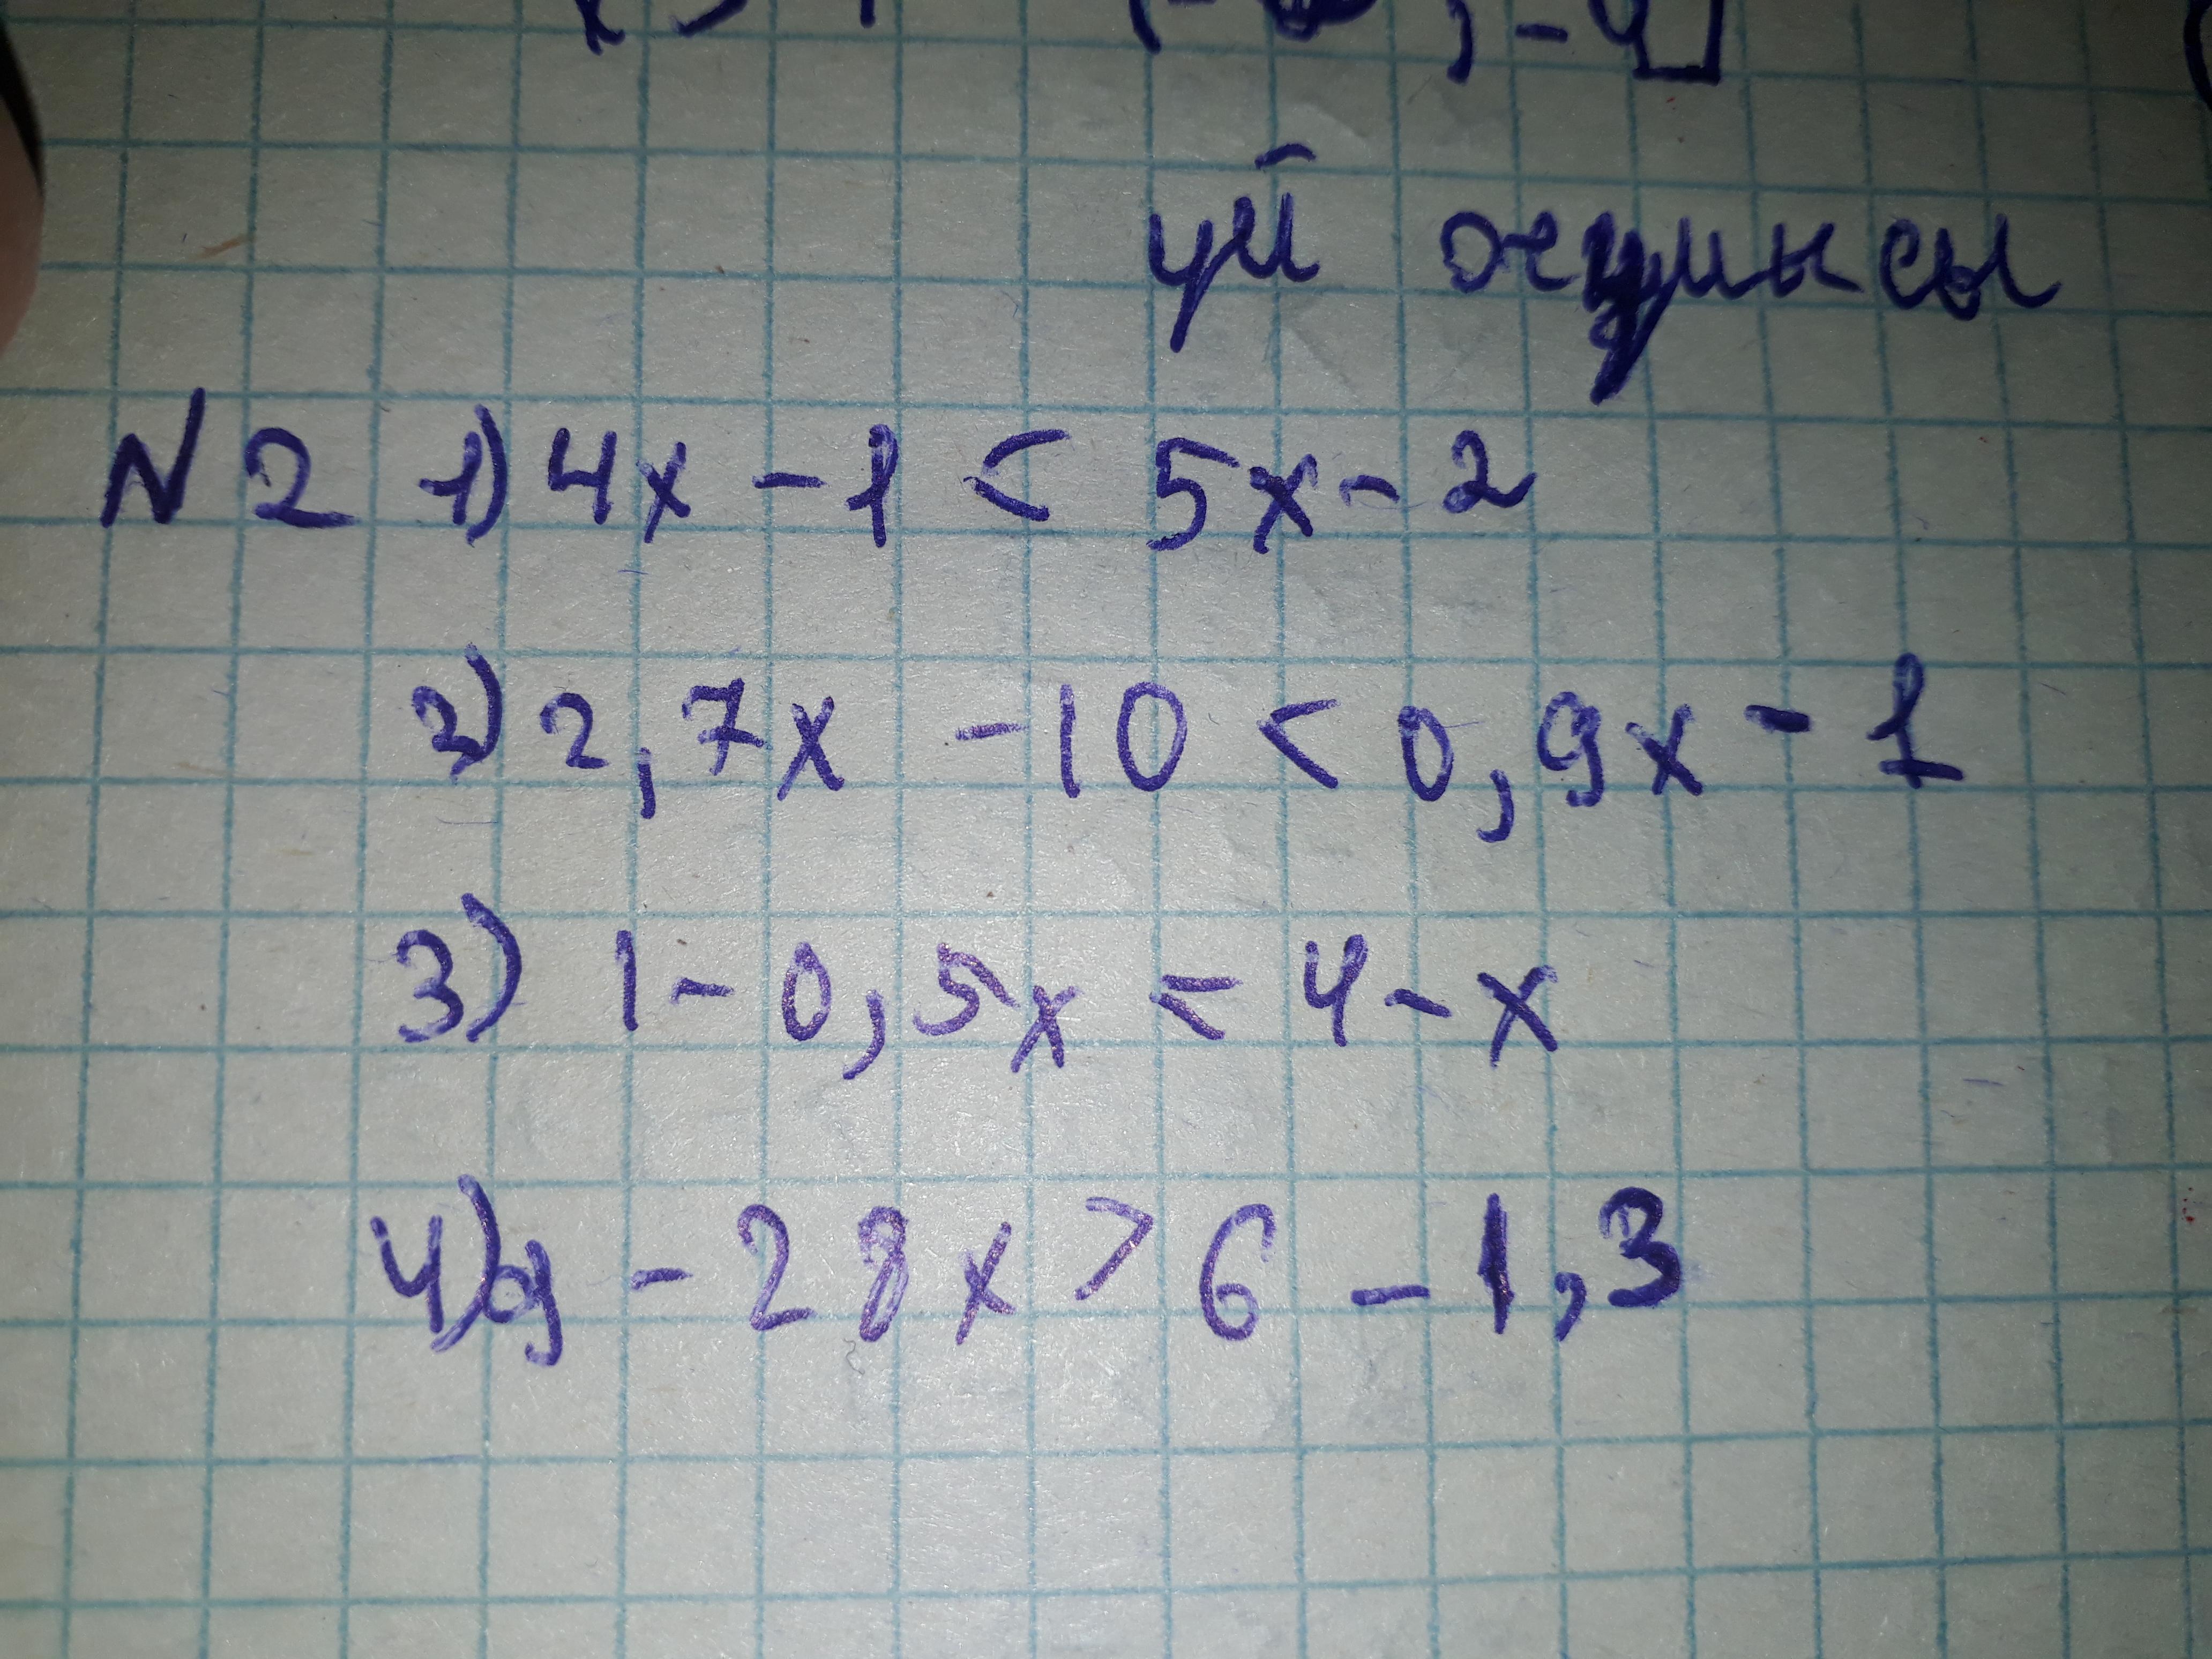 үй
N 2 1) 4x - 1 < 5x - 2
2) 2,7x - 10 < 0,9x - 1
3) 1 - 0,5x < 4 - x
4) 9 - 28x > 6 - 1,3